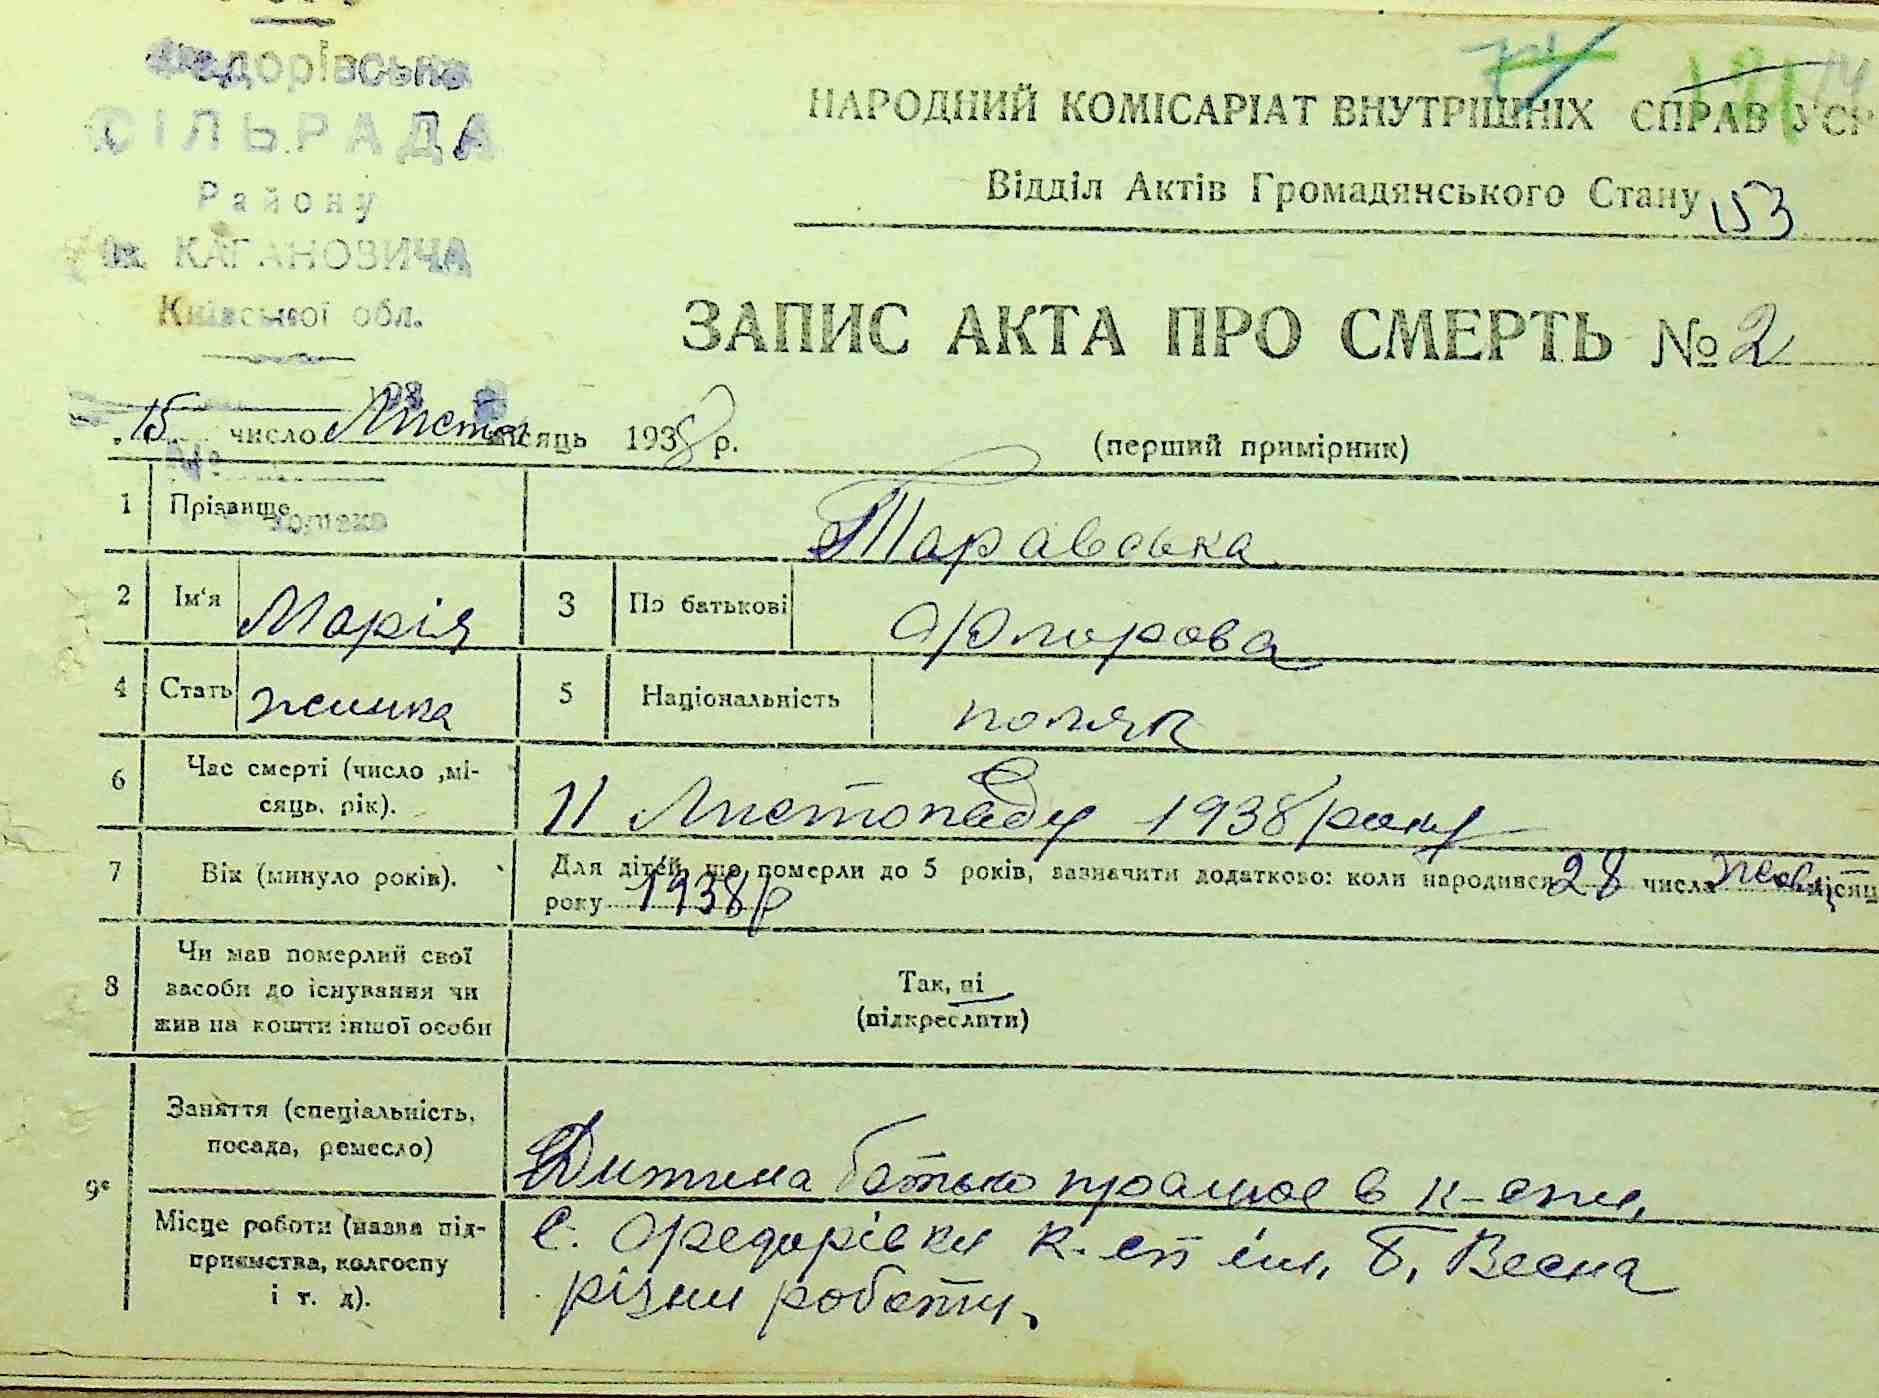 Федорівська
СІЛЬРАДА
Району
ім. КАГАНОВИЧА
Київської обл.
74
НАРОДНИЙ КОМІСАРІАТ ВНУТРІШНІХ СПРАВ УСР
Відділ Актів Громадянського Стану 153
ЗАПИС АКТА ПРО СМЕРТЬ № 2
193
"15 число Листо місяць 1938 р. (перший примірник)
№
1 Прізвище Таравська
2 Ім'я Марія 3 По батькові
4 Стать жинка 5 Національність поляк
6 Час смерті (число ,мі-
сяць, рік).
11 Листопаду 1938 року
7 Вік (минуло років).
Для дітей, що померли до 5 років, зазначити додатково: коли народився 28 числа жов місяц
року 1938 р
8 Чи мав померлий свої
засоби до існування чи
жив на кошти іншої особи
Так, ні
(підкреслити)
9 Заняття (спеціальність,
посада, ремесло)
Дитина батько працює в к-спи,
Місце роботи (назва під-
приємства, колгоспу
і т. д).
с. Федорівки к-сп ім. Б. Весна
різни роботи.